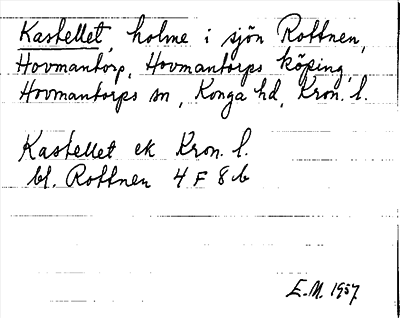 Kastellet, holme i sjön Rottnen,
Hovmantorp, Hovmantorps köping,
Hovmantorps sn, Konga hd, Kron. l.
Kastellet ek Kron. l.
bl. Rottnen 4 F 8 b
E.M. 1957